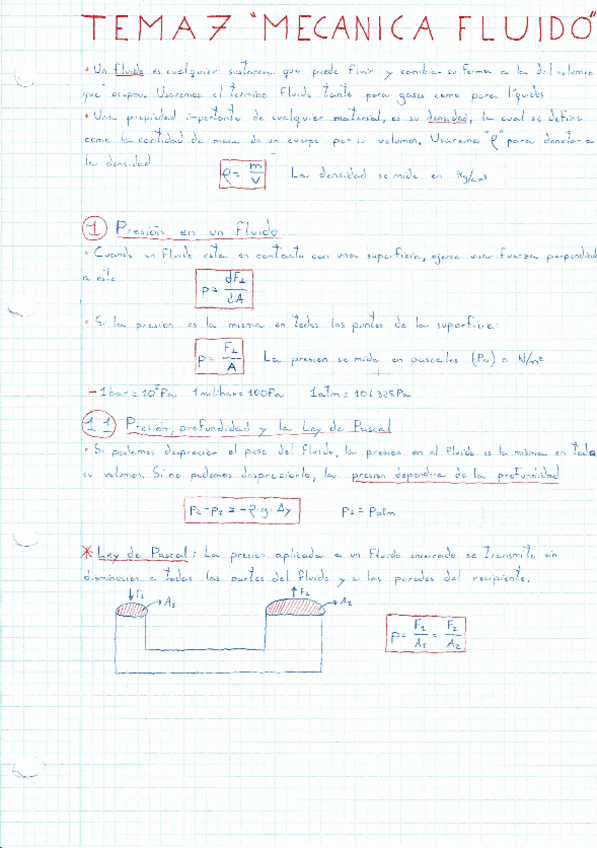 TEMA 7 "MECANICA FLUIDO"
• Un fluido es cualquier sustancia que puede fluir y cambiar su forma a la del volumen
que ocupa. Usaremos el termino fluido tanto para gases como para líquidos
• Una propiedad importante de cualquier material, es su densidad, la cual se define
como la cantidad de masa de un cuerpo por su volumen. Usaremos "ρ" para denotar a
la densidad
ρ = m/V La densidad se mide en Kg/cm³
1 Presión en un Fluido
• Cuando un fluido esta en contacto con una superficie, ejerce una fuerza perpendicul
a este
p = dF⊥/dA
• Si la presion es la misma en todos los puntos de la superficie:
p = F⊥/A La presion se mide en pascales (Pa) o N/m²
- 1 bar = 10⁵ Pa 1 milibar = 100 Pa 1 atm = 101325 Pa
1.1 Presión, profundidad y la Ley de Pascal
• Si podemos despreciar el peso del fluido, la presion en el fluido es la misma en todo
su volumen. Si no podemos despreciarlo, la presion dependera de la profundidad
P₂-P₁ = -ρ·g·Δy P₂ = Patm
* Ley de Pascal: La presion aplicada a un Fluido encerrado se transmite sin
disminucion a todas las partes del fluido y a las paredes del recipiente.
↓F₁ → A₁ ↑F₂ → A₂
p = F₁/A₁ = F₂/A₂